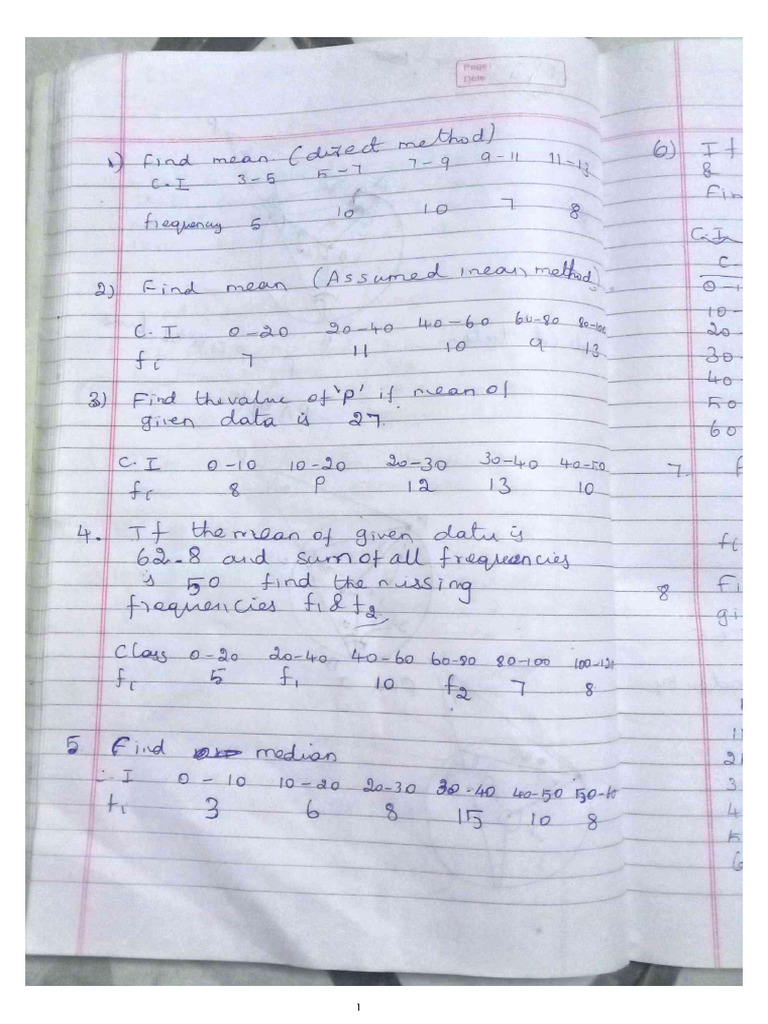 Page:
Date
1) Find mean (direct method)
C.I 3-5 5-7 7-9 9-11 11-13
frequency 5 10 10 7 8
2) Find mean (Assumed mean method)
C.I 0-20 20-40 40-60 60-80 80-100
fi 7 11 10 9 13
3) Find the value of 'p' if mean of
given data is 27.
C.I 0-10 10-20 20-30 30-40 40-50
fi 8 P 12 13 10
4. If the mean of given data is
62.8 and sum of all frequencies
is 50 find the missing
frequencies f1 & f2
Class 0-20 20-40 40-60 60-80 80-100 100-121
fi 5 f1 10 f2 7 8
5 Find median
C.I 0-10 10-20 20-30 30-40 40-50 50-60
fi 3 6 8 15 10 8
6) If
8
Fin
C.I
C.
0-1
10-
20
30
40
50
60
7.
fi
8 Fi
gi
11
21
3
4
5
6
1